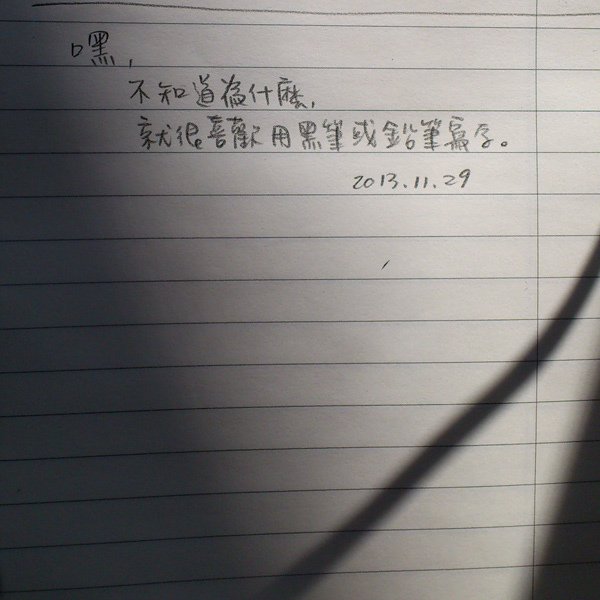 嘿,
不知道為什麼,
就很喜歡用黑筆或鉛筆寫字。
2013.11.29